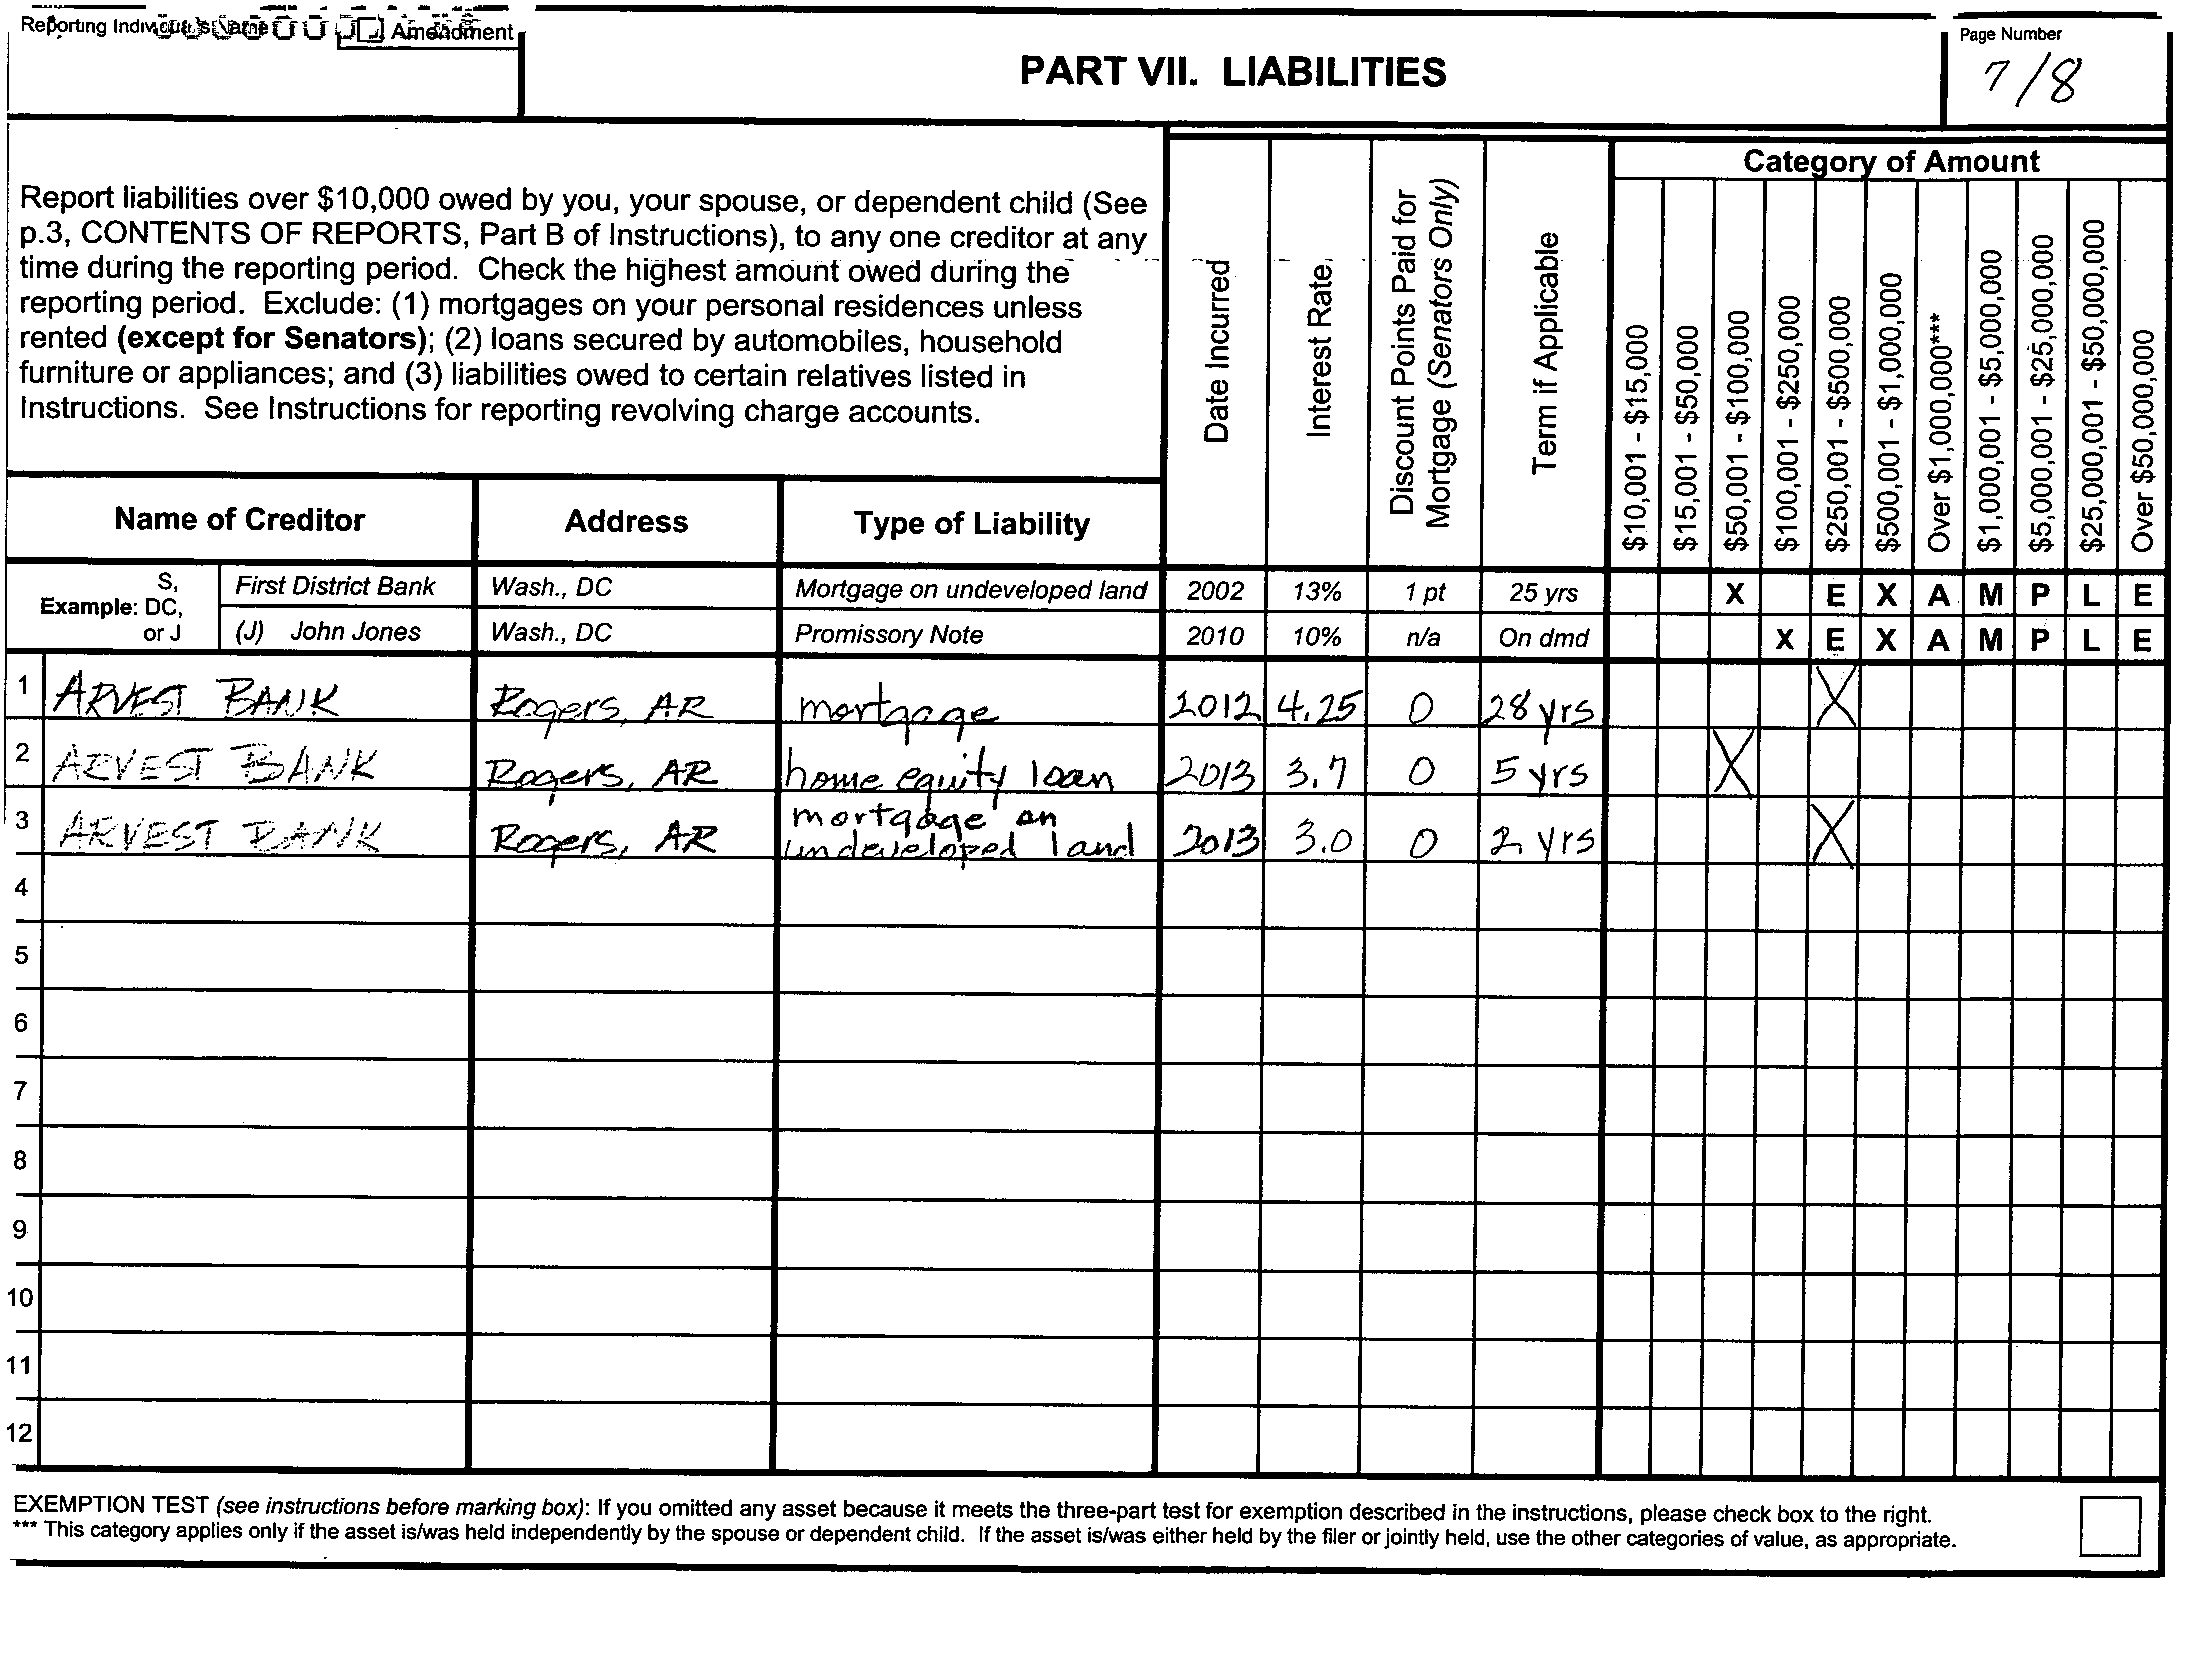 Reporting Individual's Name
Amendment
PART VII. LIABILITIES
Page Number
7/8
Report liabilities over $10,000 owed by you, your spouse, or dependent child (See
p.3, CONTENTS OF REPORTS, Part B of Instructions), to any one creditor at any
time during the reporting period. Check the highest amount owed during the
reporting period. Exclude: (1) mortgages on your personal residences unless
rented (except for Senators); (2) loans secured by automobiles, household
furniture or appliances; and (3) liabilities owed to certain relatives listed in
Instructions. See Instructions for reporting revolving charge accounts.
Date Incurred
Interest Rate
Discount Points Paid for
Mortgage (Senators Only)
Term if Applicable
Category of Amount
$10,001 - $15,000
$15,001 - $50,000
$50,001 - $100,000
$100,001 - $250,000
$250,001 - $500,000
$500,001 - $1,000,000
Over $1,000,000***
$1,000,001 - $5,000,000
$5,000,001 - $25,000,000
$25,000,001 - $50,000,000
Over $50,000,000
Name of Creditor Address Type of Liability
Example: S, DC, or J
First District Bank Wash., DC Mortgage on undeveloped land 2002 13% 1 pt 25 yrs X E X A M P L E
(J) John Jones Wash., DC Promissory Note 2010 10% n/a On dmd X E X A M P L E
1 ARVEST BANK Rogers, AR mortgage 2012 4.25 0 28 yrs X
2 ARVEST BANK Rogers, AR home equity loan 2013 3.7 0 5 yrs X
3 ARVEST BANK Rogers, AR mortgage on undeveloped land 2013 3.0 0 2 yrs X
4
5
6
7
8
9
10
11
12
EXEMPTION TEST (see instructions before marking box): If you omitted any asset because it meets the three-part test for exemption described in the instructions, please check box to the right.
*** This category applies only if the asset is/was held independently by the spouse or dependent child. If the asset is/was either held by the filer or jointly held, use the other categories of value, as appropriate.